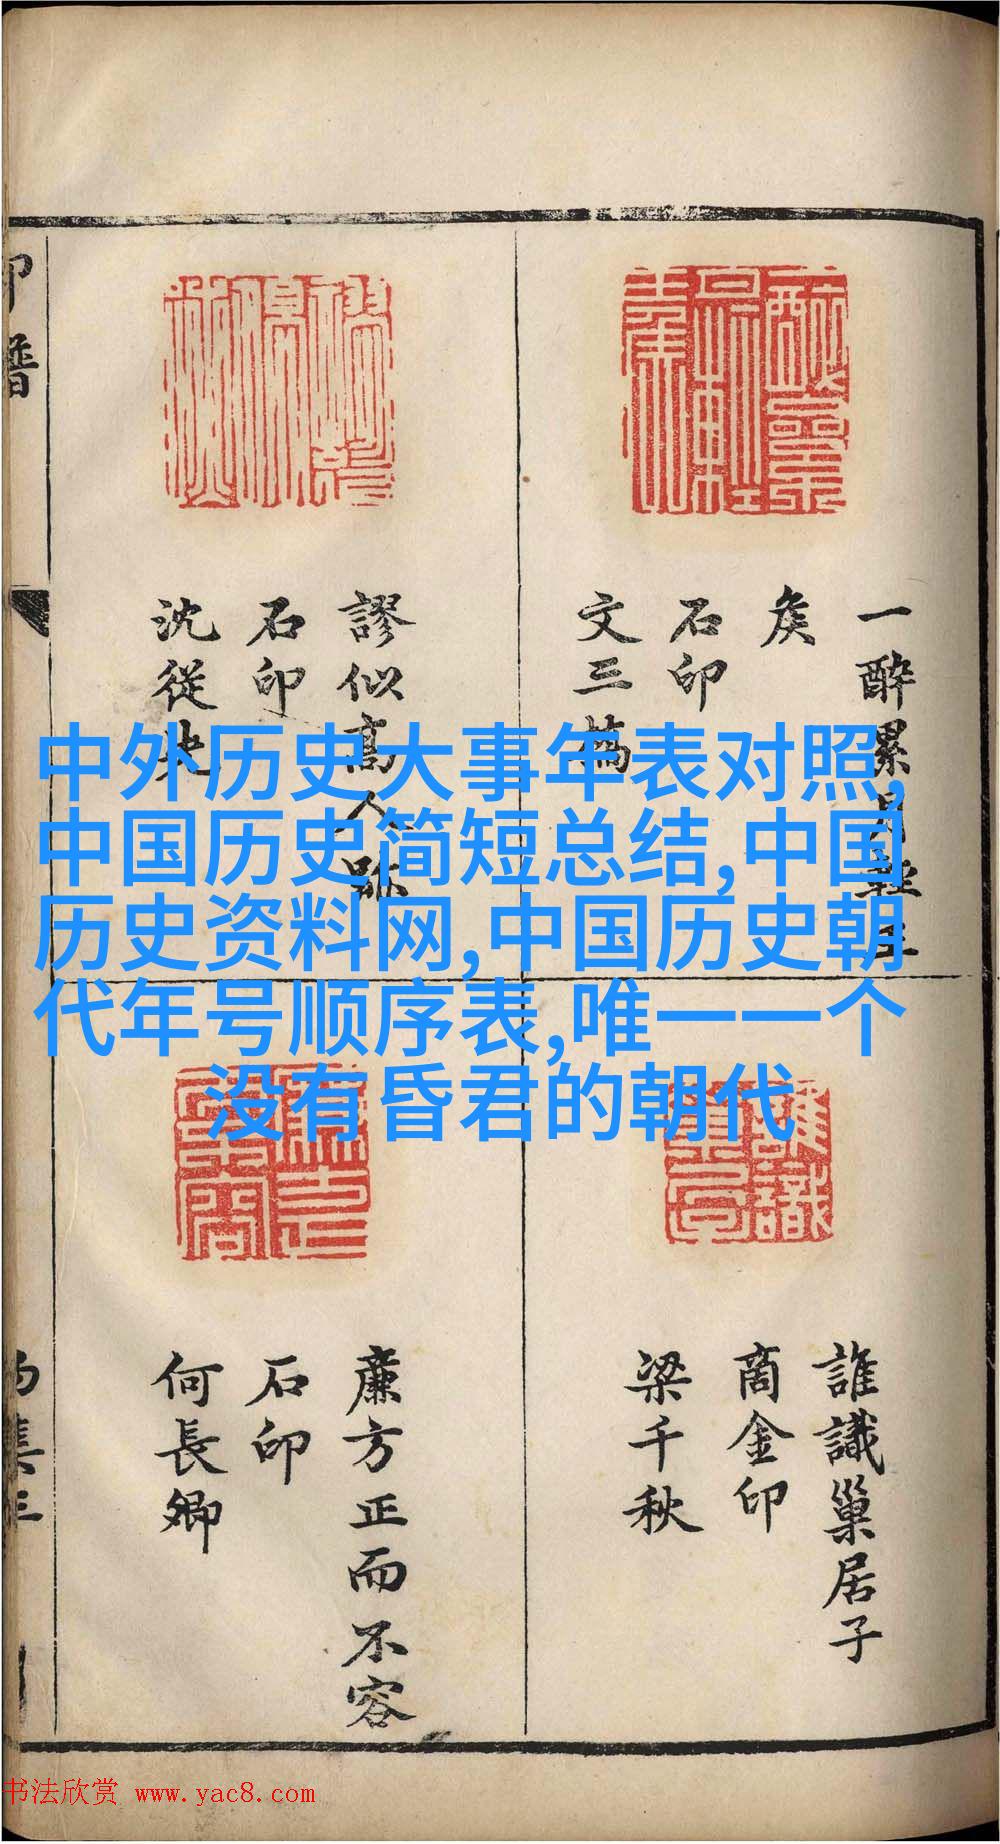 中外历史大事年表对照,
中国历史简短总结,中国
历史资料网,中国历史朝
代年号顺序表,唯一一个
没有昏君的朝代
一醉累月輕王
矦
石印
文三橋
謬似高人跡
石印
沈從先
誰識巢居子
商金印
梁千秋
廉方正而不容
石印
何長卿
印譜
书法欣赏 www.yac8.com